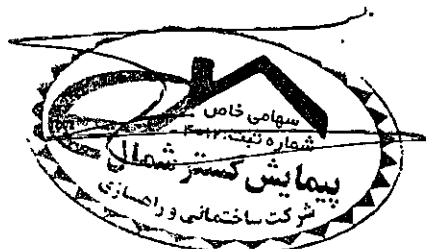 سهامی خاص
شماره ثبت:
پیمایش گستر شمال
شرکت ساختمانی و راهسازی